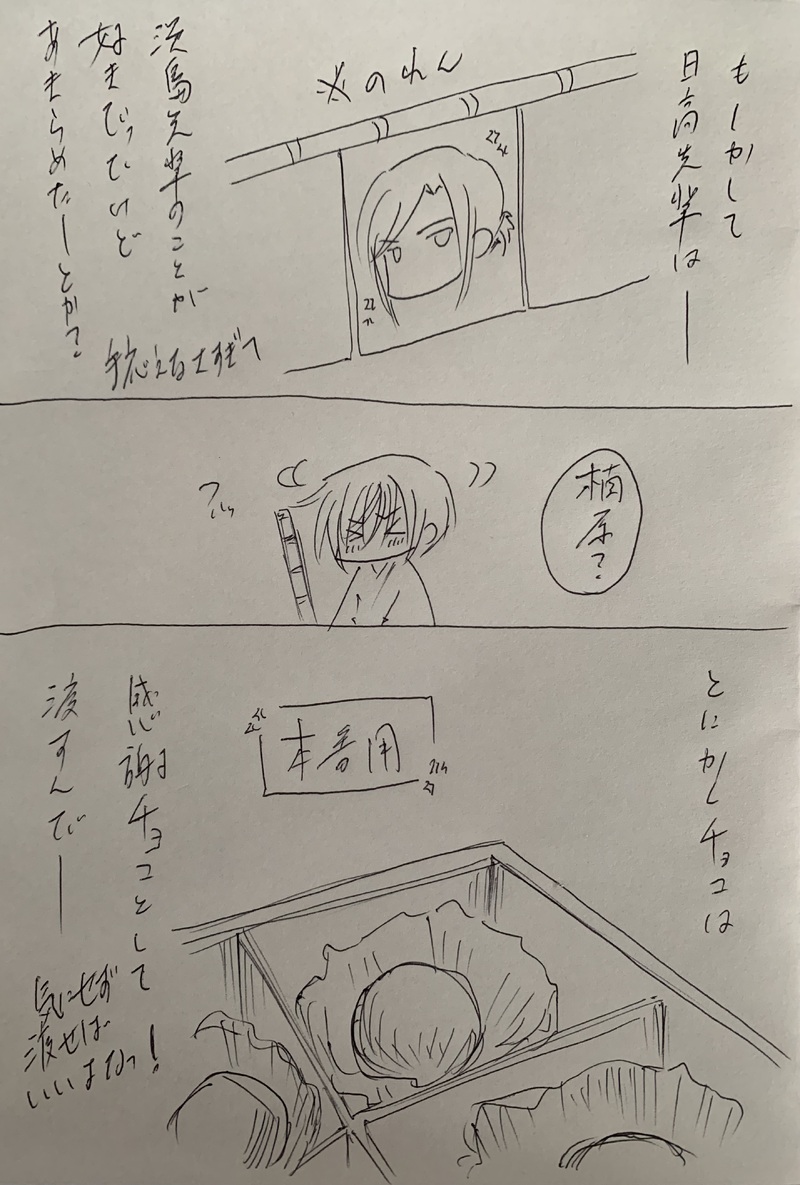 もしかして
日高先輩は―
※のれん
淡島先輩のことが
好きだったけど
あきらめたーとか?
考えるなすぎて
楠原?
とにかくチョコは
本番用
感謝チョコとして
渡すんで―
気にせず
渡せば
いいよなっ!